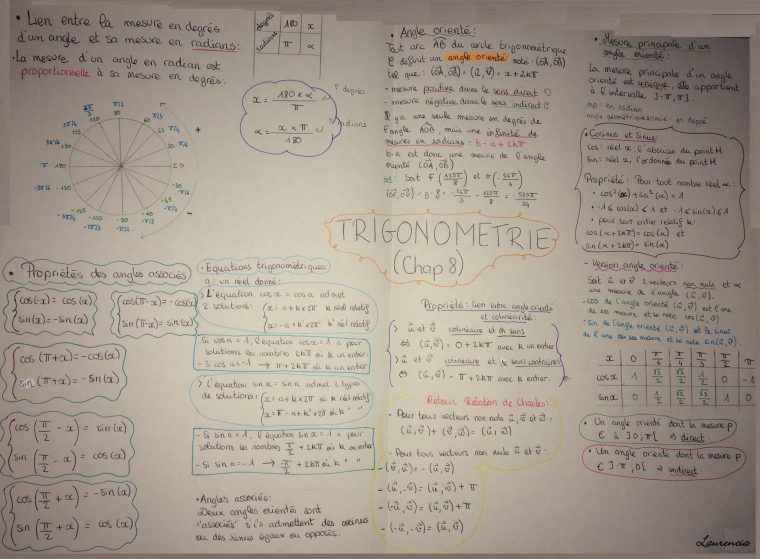 • Lien entre la mesure en degrés
d'un angle et sa mesure en
radians :
• La mesure d'un angle en radian est
proportionnelle à sa mesure en degrés :
degrés 180 x
radians π α
x = 180 × α / π ~ ? degrés
α = x × π / 180 ~ ? radians
• Angle orienté :
Tout arc AB du cercle trigonométrique
C définit un angle orienté noté : (OA, OB)
tel que : (OA, OB) = (u, v) = x + 2kπ
- mesure positive dans le sens direct
- mesure négative dans le sens indirect
Il y a une seule mesure en degrés de
l'angle AOB, mais une infinité de
mesures en radians : b - a + 2kπ
b-a est donc une mesure de l'angle
orienté (OA, OB)
• Mesure principale d'un
angle orienté :
La mesure principale d'un angle
orienté est unique, elle appartient
à l'intervalle ]-π, π].
mp : en radian
angle géométrique associé : en degré
• Cosinus et sinus :
cos : réel x, l'abscisse du point M
sin : réel x, l'ordonnée du point M
Propriété : Pour tout nombre réel x :
• cos²(x) + sin²(x) = 1
• -1 ≤ cos(x) ≤ 1 et -1 ≤ sin(x) ≤ 1
• pour tout entier relatif k :
cos(x + 2kπ) = cos(x) et
sin(x + 2kπ) = sin(x)
TRIGONOMETRIE
(Chap 8)
• Propriétés des angles associés
cos(-x) = cos(x)
sin(-x) = -sin(x)
cos(π-x) = -cos(x)
sin(π-x) = sin(x)
cos(π+x) = -cos(x)
sin(π+x) = -sin(x)
cos(π/2 - x) = sin(x)
sin(π/2 - x) = cos(x)
cos(π/2 + x) = -sin(x)
sin(π/2 + x) = cos(x)
• Equations trigonométriques :
a : un réel donné :
> L'équation cos x = cos a admet
2 solutions : x = a + k×2π k réel relatif
x = -a + k'×2π k' réel relatif
- Si cos a = 1, l'équation cos x = 1 a pour
solutions les nombres 2kπ où k un entier.
- Si cos a = -1 → π + 2kπ où k un entier
> L'équation sin x = sin a admet 2 types
de solutions : x = a + k×2π où k réel relatif
x = π - a + k'×2π où k " "
- Si sin a = 1, l'équation sin x = 1 a pour
solutions les nombres π/2 + 2kπ où k entier relatif
• Angles associés :
Deux angles orientés sont
"associés" s'ils admettent des cosinus
ou des sinus égaux ou opposés.
Propriété : Lien entre angle orienté
et colinéarité :
> u et v colinéaire et m̂ sens
⇔ (u, v) = 0 + 2kπ avec k un entier.
> u et v colinéaire et de sens contraires
⇔ (u, v) = π + 2kπ avec k entier.
Retour Relation de Chasles :
• Pour tous vecteurs non nuls u, v et w :
(u, v) + (v, w) = (u, w)
• Pour tous vecteurs non nuls u et v :
- (v, u) = -(u, v)
- (u, -v) = (u, v) + π
- (-u, v) = (u, v) + π
- (-u, -v) = (u, v)
- Version angle orienté :
Soit u et v 2 vecteurs non nuls et α
une mesure de l'angle (u, v).
x 0 π/6 π/4 π/3 π/2 π
cos x 1 √3/2 √2/2 1/2 0 -1
sin x 0 1/2 √2/2 √3/2 1 0
• Un angle orienté dont la mesure p
∈ à ]0, π[ → direct.
• Un angle orienté dont la mesure p
∈ ]-π, 0[ → indirect.
Laurencia